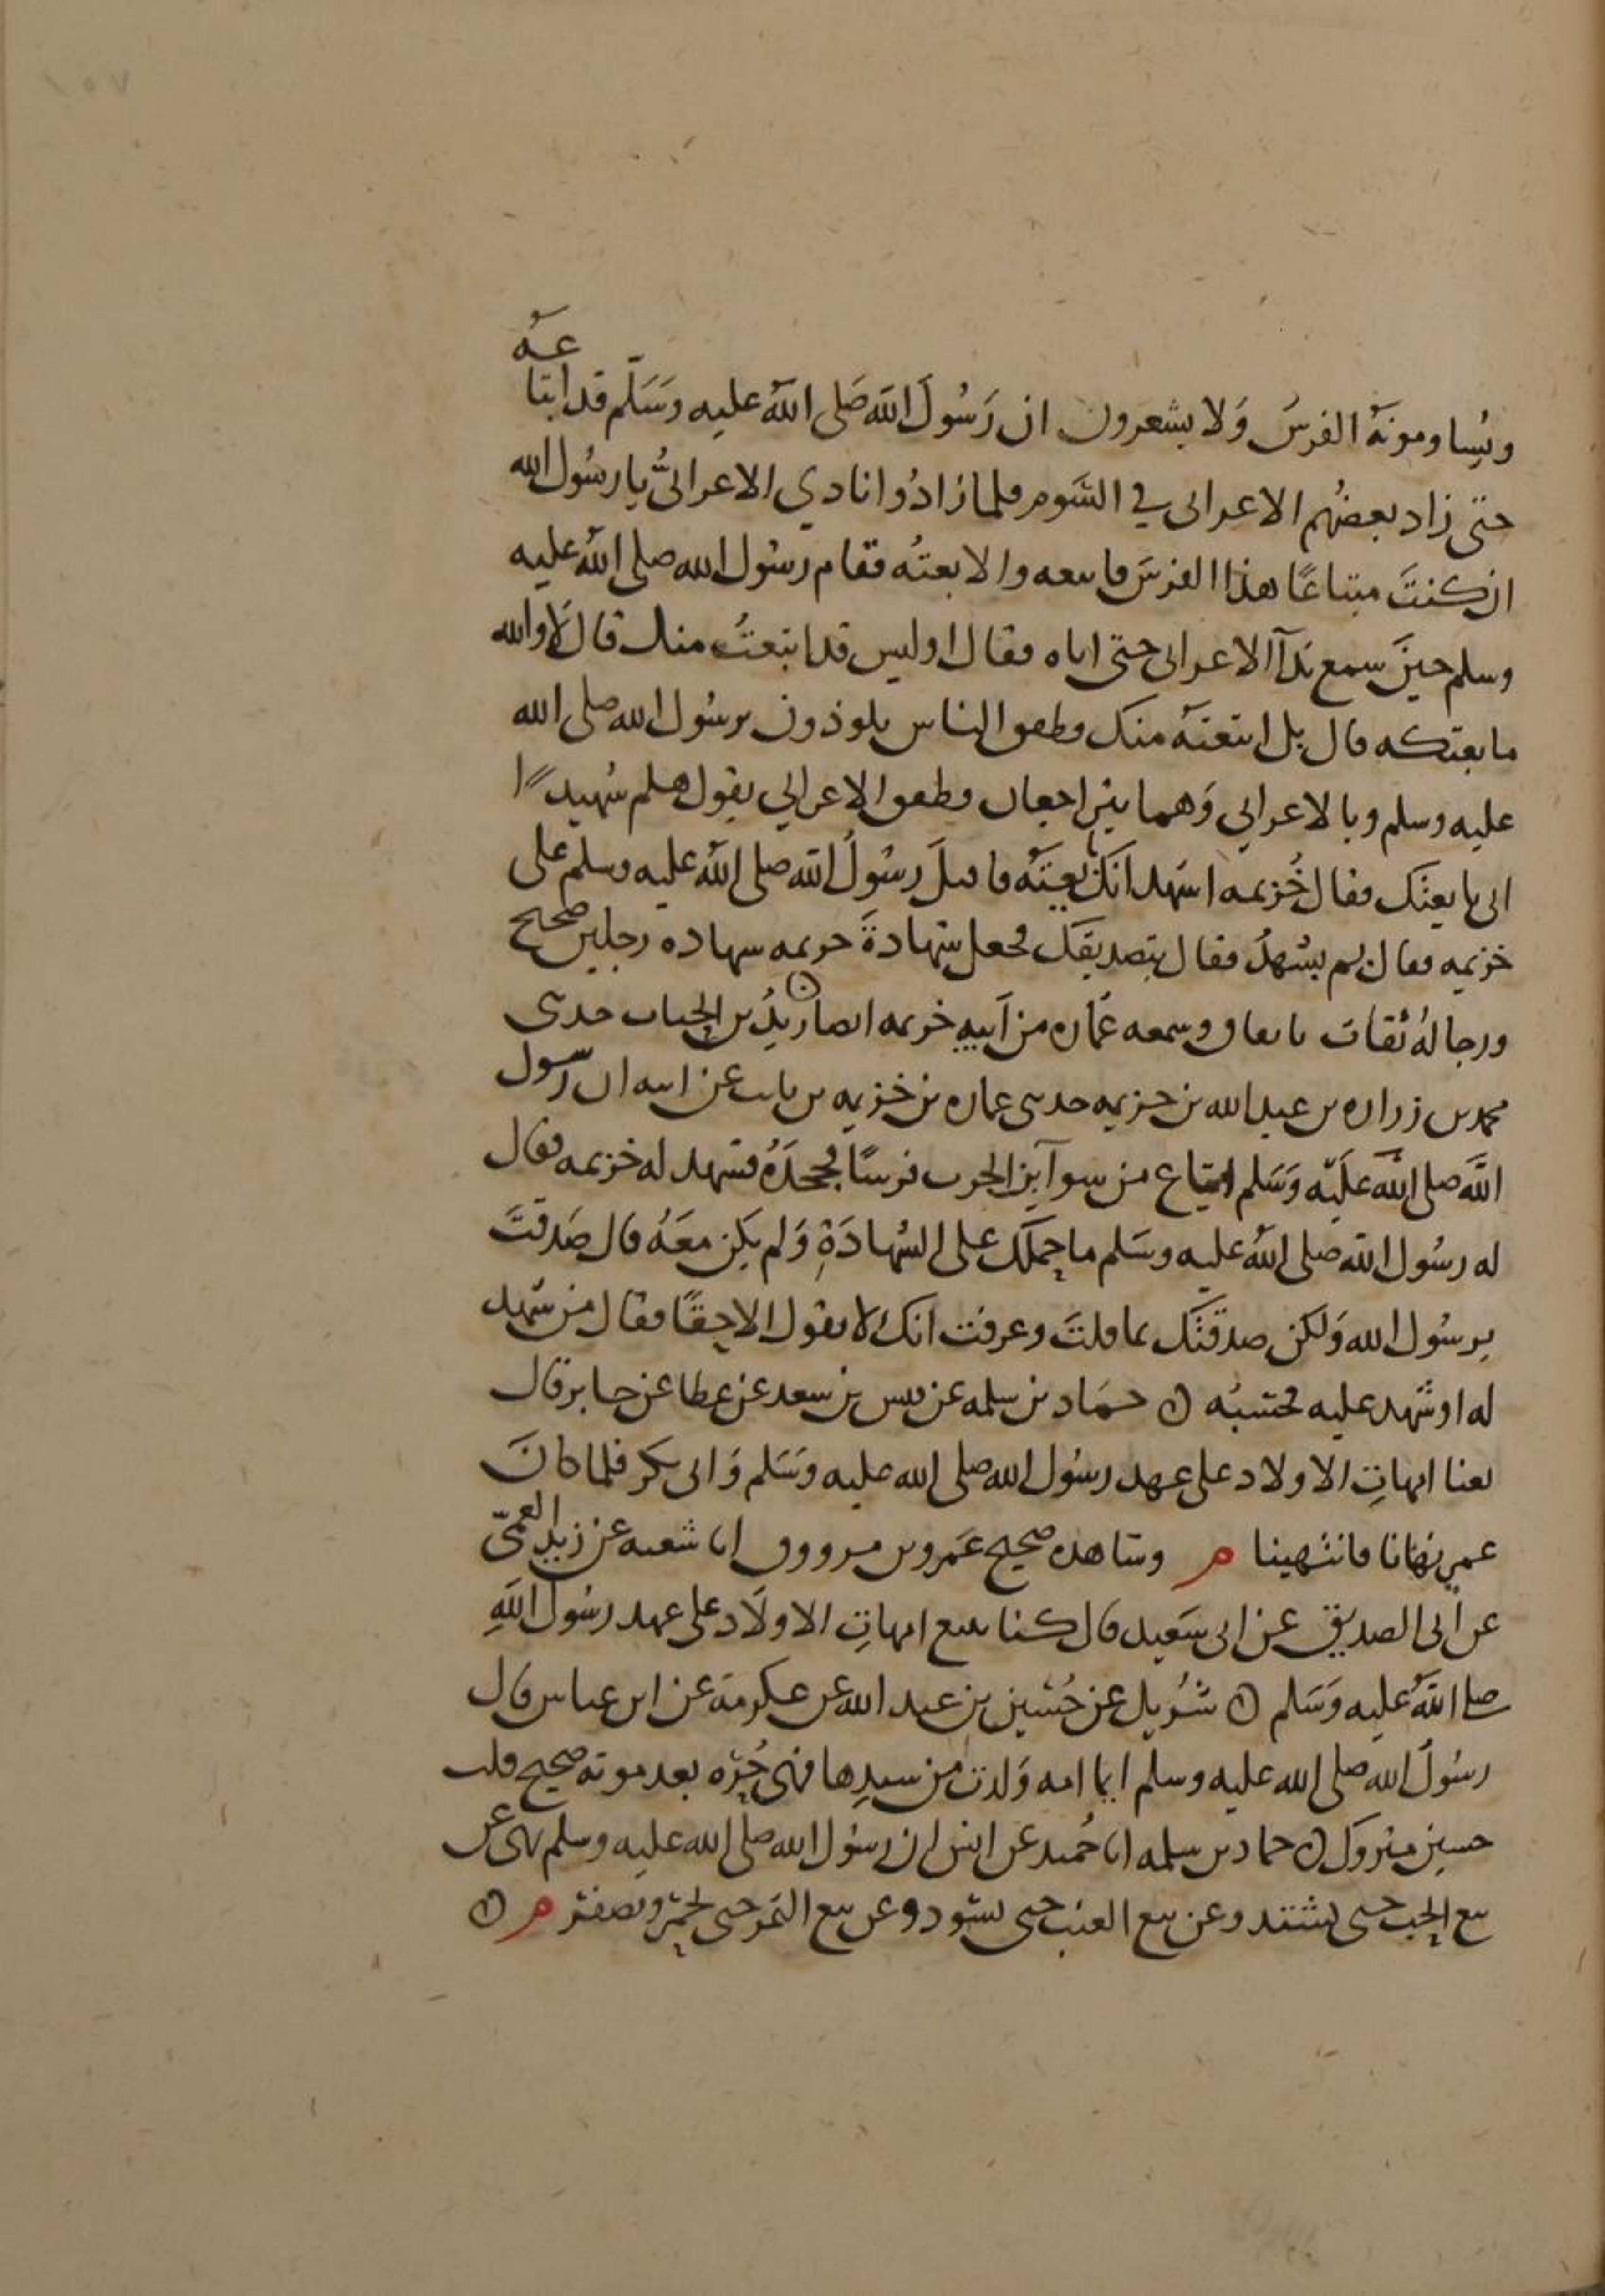 ويساومونه الفرس ولا يشعرون ان رسول الله صلى الله عليه وسلم قد ابتاعه
حتى زاد بعضهم الاعرابي في السوم فلما زادوا نادي الاعرابي يا رسول الله
ان كنت مبتاعا هذا الفرس فابتعه والا بعته فقام رسول الله صلى الله عليه
وسلم حين سمع ندآ الاعرابي حتى اتاه فقال اوليس قد ابتعت منك قال لا والله
ما بعتكه قال بل ابتعته منك وطفق الناس يلوذون برسول الله صلى الله
عليه وسلم وبالاعرابي وهما يتراجعان وطفق الاعرابي يقول هلم شهيدا
اني بايعتك فقال خزيمه اشهد انك بايعته فاقبل رسول الله صلى الله عليه وسلم على
خزيمه فقال بم تشهد فقال بتصديقك فجعل شهادة خزيمه شهاده رجلين صحيح
ورجاله ثقات باتفاق وسمعه عماره من ابيه خزيمه ايضا زيد بن الحباب حدثني
محمد بن زراره بن عبد الله بن خزيمه حدثني عماره بن خزيمه بن ثابت عن ابيه ان رسول
الله صلى الله عليه وسلم ابتاع من سوآ بن الحرث فرسا فجحده فشهد له خزيمه فقال
له رسول الله صلى الله عليه وسلم ما حملك على الشهادة ولم يكن معه قال صدقت
يرسول الله ولكن صدقتك بما قلت وعرفت انك لا تقول الا حقا فقال من شهد
له او شهد عليه فحسبه ۞ حماد بن سلمه عن قيس بن سعد عن عطا عن جابر قال
بعنا امهات الاولاد على عهد رسول الله صلى الله عليه وسلم وابى بكر فلما كان
عمر نهانا فانتهينا م وشاهده صحيح عمرو بن مرزوق انا شعبه عن زيد العمي
عن ابي الصديق عن ابى سعيد قال كنا نبيع امهات الاولاد على عهد رسول الله
صلى الله عليه وسلم ۞ شريك عن حسين بن عبد الله عن عكرمة عن ابن عباس قال
رسول الله صلى الله عليه وسلم ايما امه ولدت من سيدها فهى حره بعد موته صحيح قلت
حسين متروك ۞ حماد بن سلمه انا حميد عن انس ان رسول الله صلى الله عليه وسلم نهى عن
بيع الحب حتى يشتد وعن بيع العنب حتى يسود وعن بيع التمر حتى يحمر ويصفر م ۞